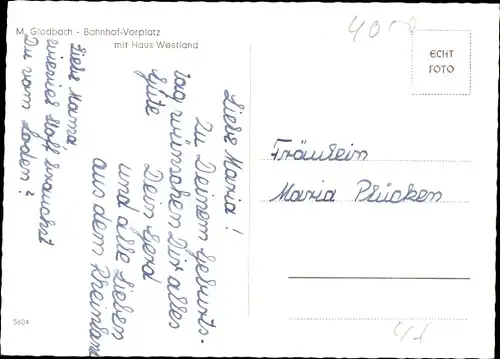 M. Gladbach - Bahnhof-Vorplatz
mit Haus Westland
Liebe Maria!
Zu Deinem Geburts-
tag wünschen Dir alles
Gute
Dein Gerd
und alle Lieben
aus dem Rheinland
Liebe Mama
wieviel Stoff brauchst
Du vom Loden?
ECHT
FOTO
Fräulein
Maria Plücken
5604